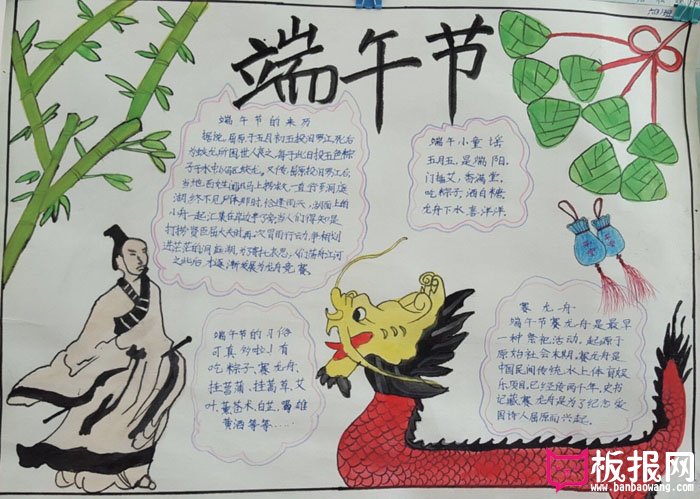 端午节
端午节的来历
据说，屈原于五月初五投汨罗江，死后
为蛟龙所困，世人哀之，每于此日投五色粽
子于水中以驱蛟龙。又传，屈原投汨罗江后，
当地百姓闻讯马上划船
湖，终不见尸体。那时，恰逢雨天，湖面上的
小舟一起汇集在岸边
打捞贤臣屈大夫时，再次冒雨行动，争相划
进茫茫的洞庭湖。为了寄托哀思，人们荡舟江河
之此后，才逐渐发展为龙舟竞赛。
端午小童谣
五月五，是端阳。
门插艾，香满堂。
吃粽子，洒白糖。
龙舟下水喜洋洋。
平安
端午节的习俗
可真多啦！有
吃粽子、赛龙舟、
挂菖蒲、挂蒿草、艾
叶、薰苍术、白芷、喝雄
黄酒等等……
赛龙舟
端午节赛龙舟是最早
一种祭祀活动，起源于
原始社会末期，赛龙舟是
中国民间传统水上体育娱
乐项目，已经传两千年，史书
记载，赛龙舟是为了纪念爱
国诗人屈原而兴起。
板报网
www.banbaowang.com